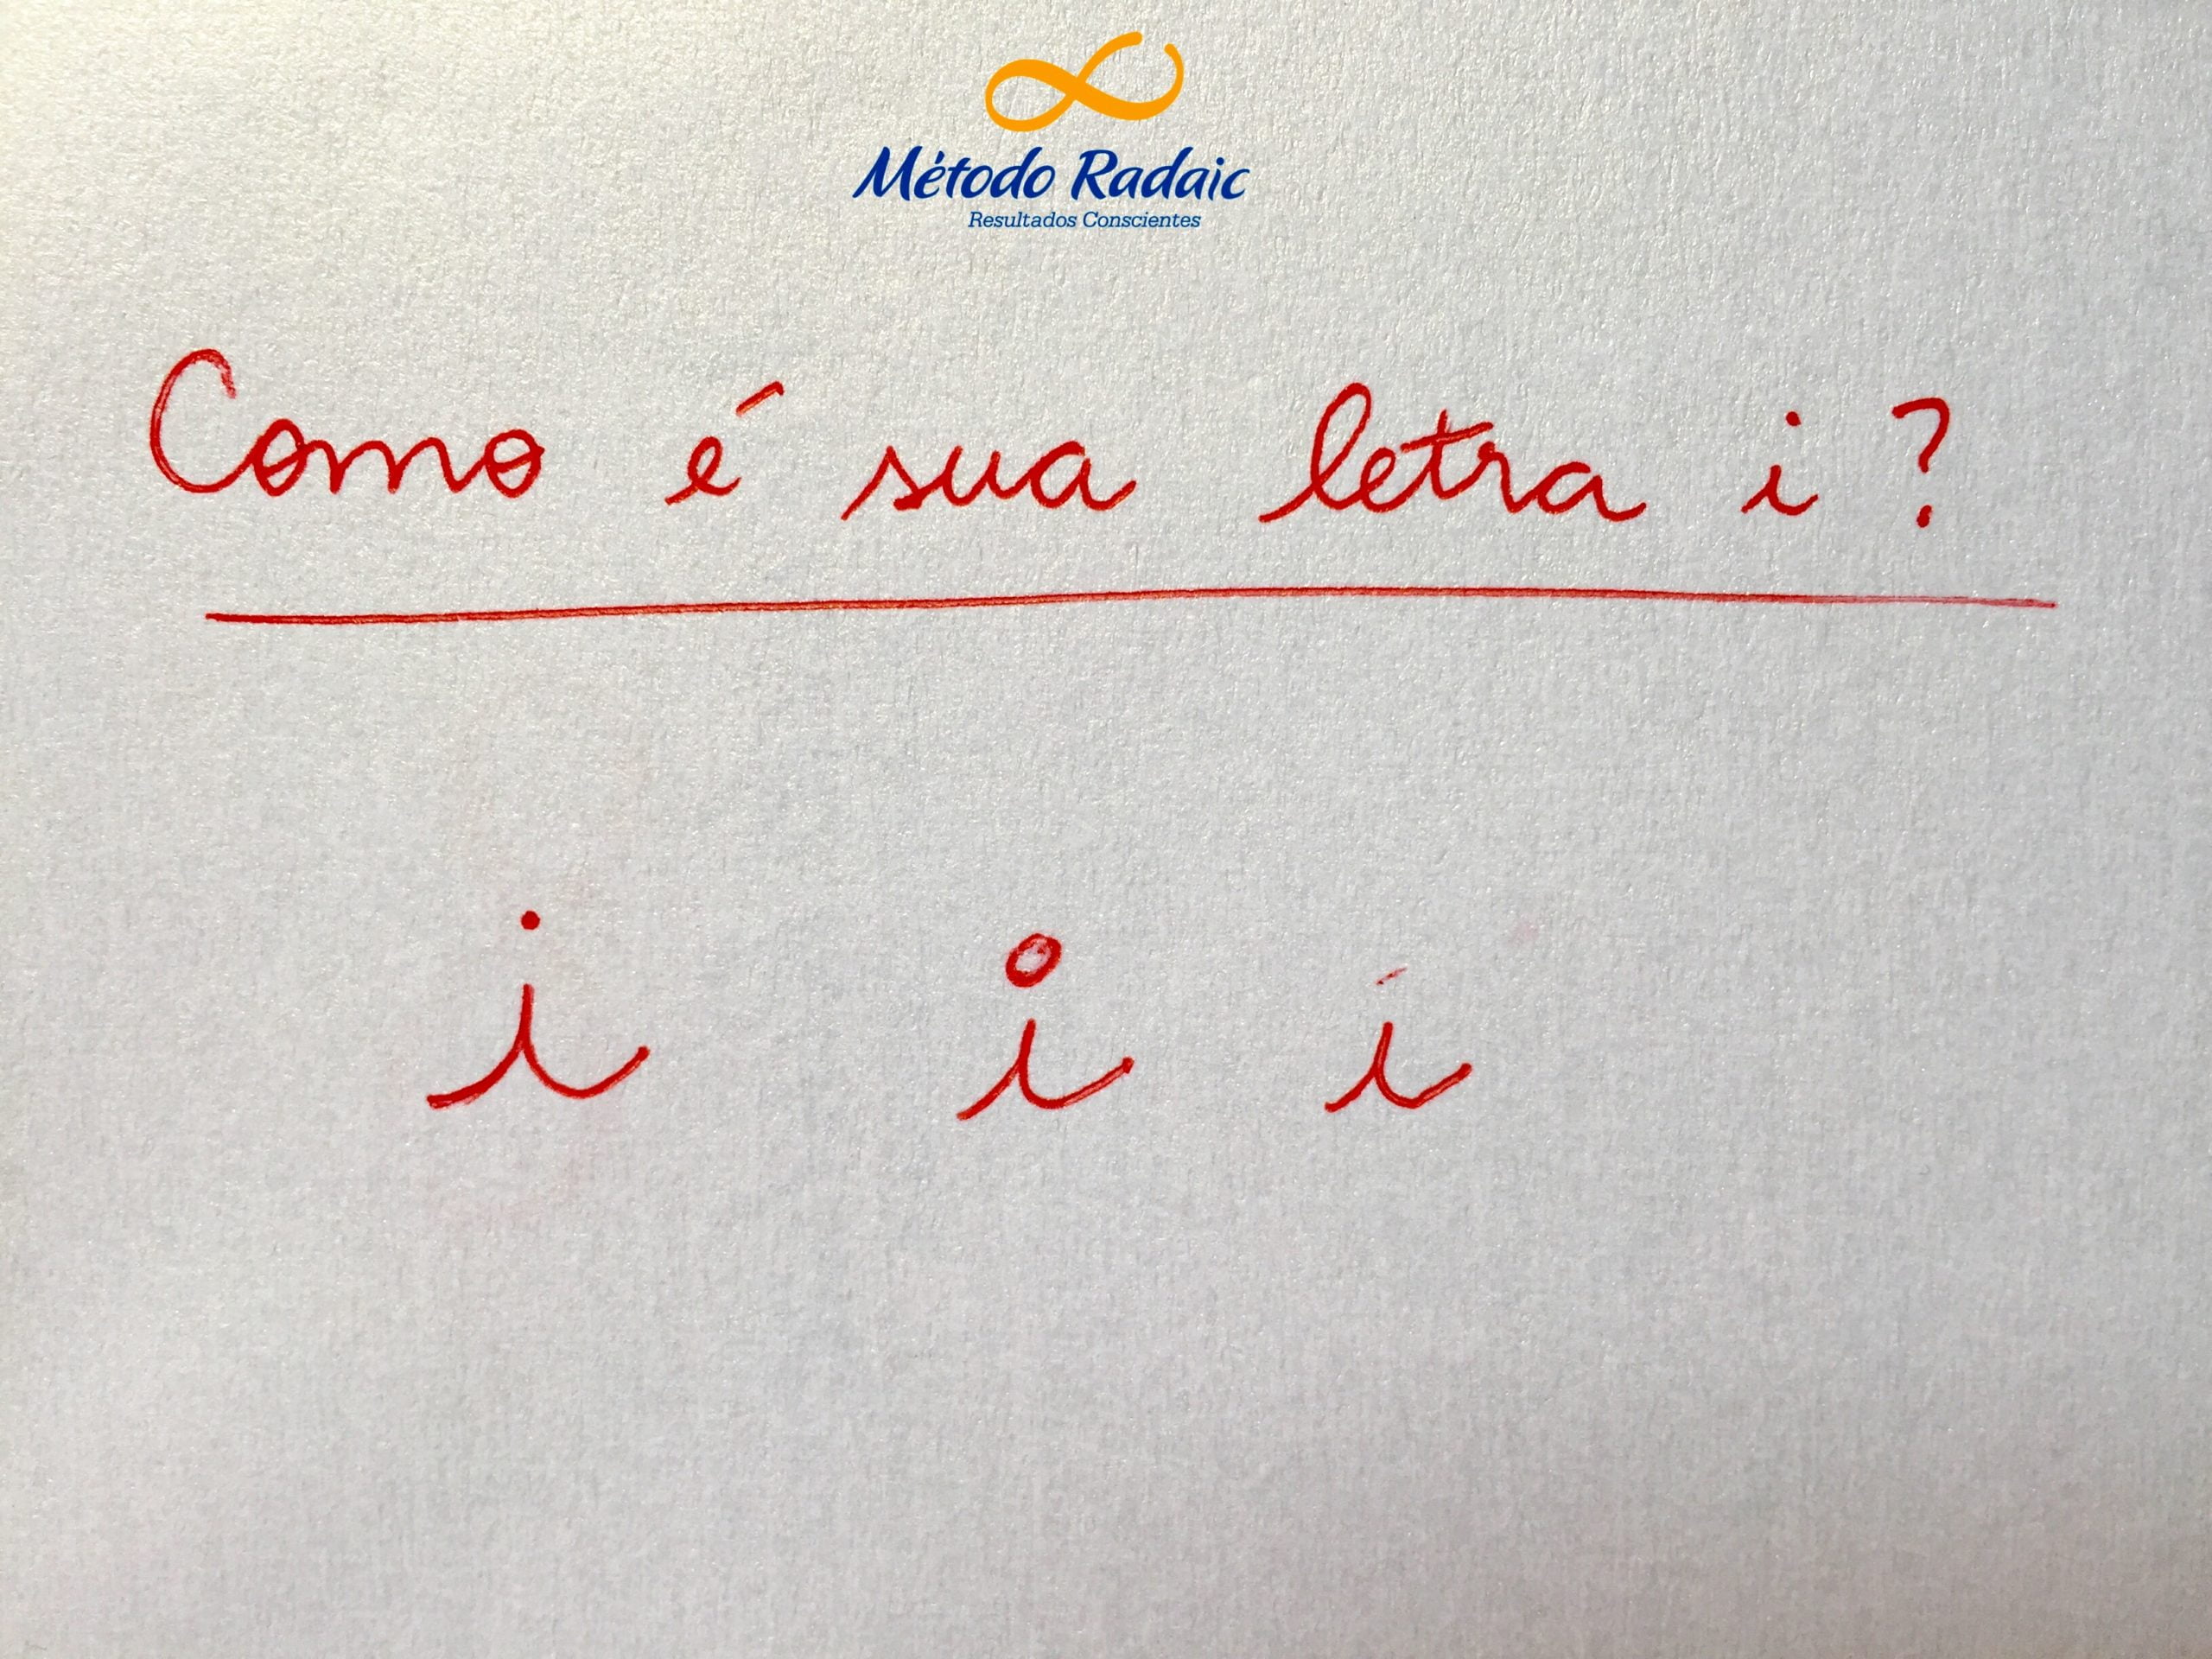 Método Radaic
Resultados Conscientes
Como é sua letra i ?
i i̊ í